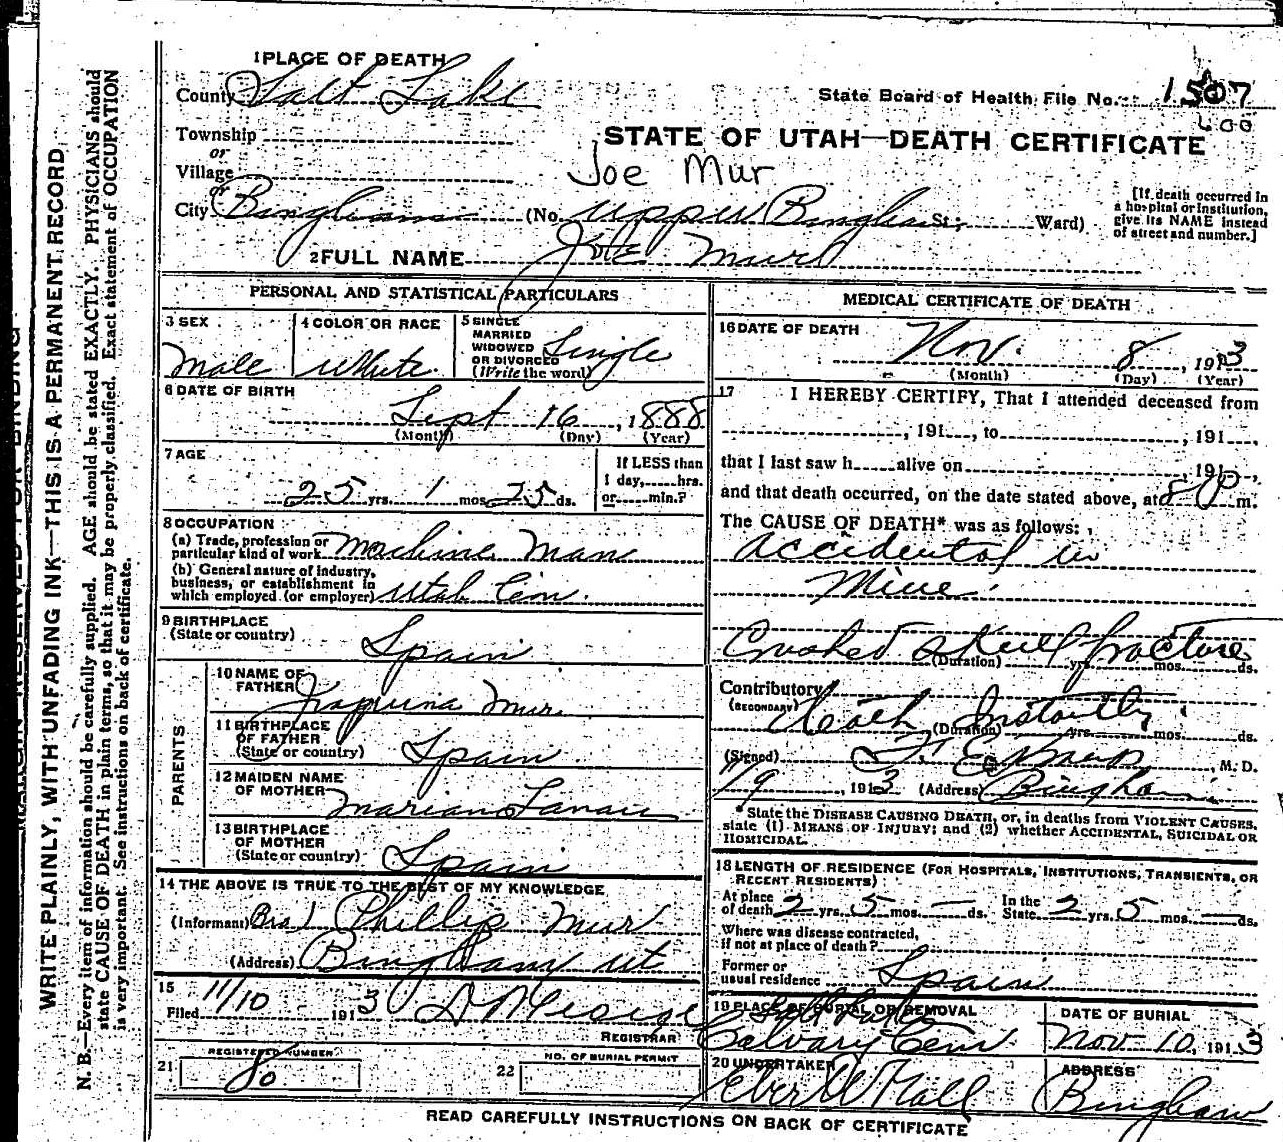 1 PLACE OF DEATH
County Salt Lake
State Board of Health File No. 1507
600
Township
or
STATE OF UTAH—DEATH CERTIFICATE
Village
Joe Mur
or
City Bingham (No. Upper Bingham St; Ward)
[If death occurred in a hospital or institution, give its NAME instead of street and number.]
2 FULL NAME Joe
PERSONAL AND STATISTICAL PARTICULARS
3 SEX
Male
4 COLOR OR RACE
White
5 SINGLE MARRIED WIDOWED OR DIVORCED (Write the word)
Single
6 DATE OF BIRTH
Sept 16, 1888
(Month) (Day) (Year)
7 AGE
25 yrs. 1 mos. 25 ds.
If LESS than 1 day, hrs. or min.?
8 OCCUPATION
(a) Trade, profession or particular kind of work Machine Man
(b) General nature of industry, business, or establishment in which employed (or employer) Utah Con.
9 BIRTHPLACE
(State or country) Spain
PARENTS
10 NAME OF FATHER Mur
11 BIRTHPLACE OF FATHER
(State or country) Spain
12 MAIDEN NAME OF MOTHER
13 BIRTHPLACE OF MOTHER
(State or country) Spain
14 THE ABOVE IS TRUE TO THE BEST OF MY KNOWLEDGE
(Informant) Phillip Mur
(Address) Bingham Ut
15
Filed 11/10 1913
REGISTRAR
21 REGISTERED NUMBER
80
22 NO. OF BURIAL PERMIT
MEDICAL CERTIFICATE OF DEATH
16 DATE OF DEATH
Nov. 8, 1913
(Month) (Day) (Year)
17 I HEREBY CERTIFY, That I attended deceased from
, 191 , to , 191 ,
that I last saw h alive on , 191 ,
and that death occurred, on the date stated above, at 8 P m.
The CAUSE OF DEATH* was as follows:
Accidental in
Mine
Crushed Skull fracture
(Duration) yrs. mos. ds.
Contributory
(SECONDARY) Death Instantly
(Duration) yrs. mos. ds.
(Signed) , M. D.
11/9, 1913 (Address) Bingham
*State the DISEASE CAUSING DEATH, or, in deaths from VIOLENT CAUSES, state (1) MEANS OF INJURY; and (2) whether ACCIDENTAL, SUICIDAL OR HOMICIDAL.
18 LENGTH OF RESIDENCE (FOR HOSPITALS, INSTITUTIONS, TRANSIENTS, OR RECENT RESIDENTS)
At place of death 2 yrs. 5 mos. — ds. In the State 2 yrs. 5 mos. — ds.
Where was disease contracted, if not at place of death?
Former or usual residence Spain
19 PLACE OF BURIAL OR REMOVAL
Salt Lake
Calvary Cem
DATE OF BURIAL
Nov 10, 1913
20 UNDERTAKER
Eber W Hall
ADDRESS
Bingham
READ CAREFULLY INSTRUCTIONS ON BACK OF CERTIFICATE
WRITE PLAINLY, WITH UNFADING INK—THIS IS A PERMANENT RECORD
N. B.—Every item of information should be carefully supplied. AGE should be stated EXACTLY. PHYSICIANS should
state CAUSE OF DEATH in plain terms, so that it may be properly classified. Exact statement of OCCUPATION
is very important. See instructions on back of certificate.